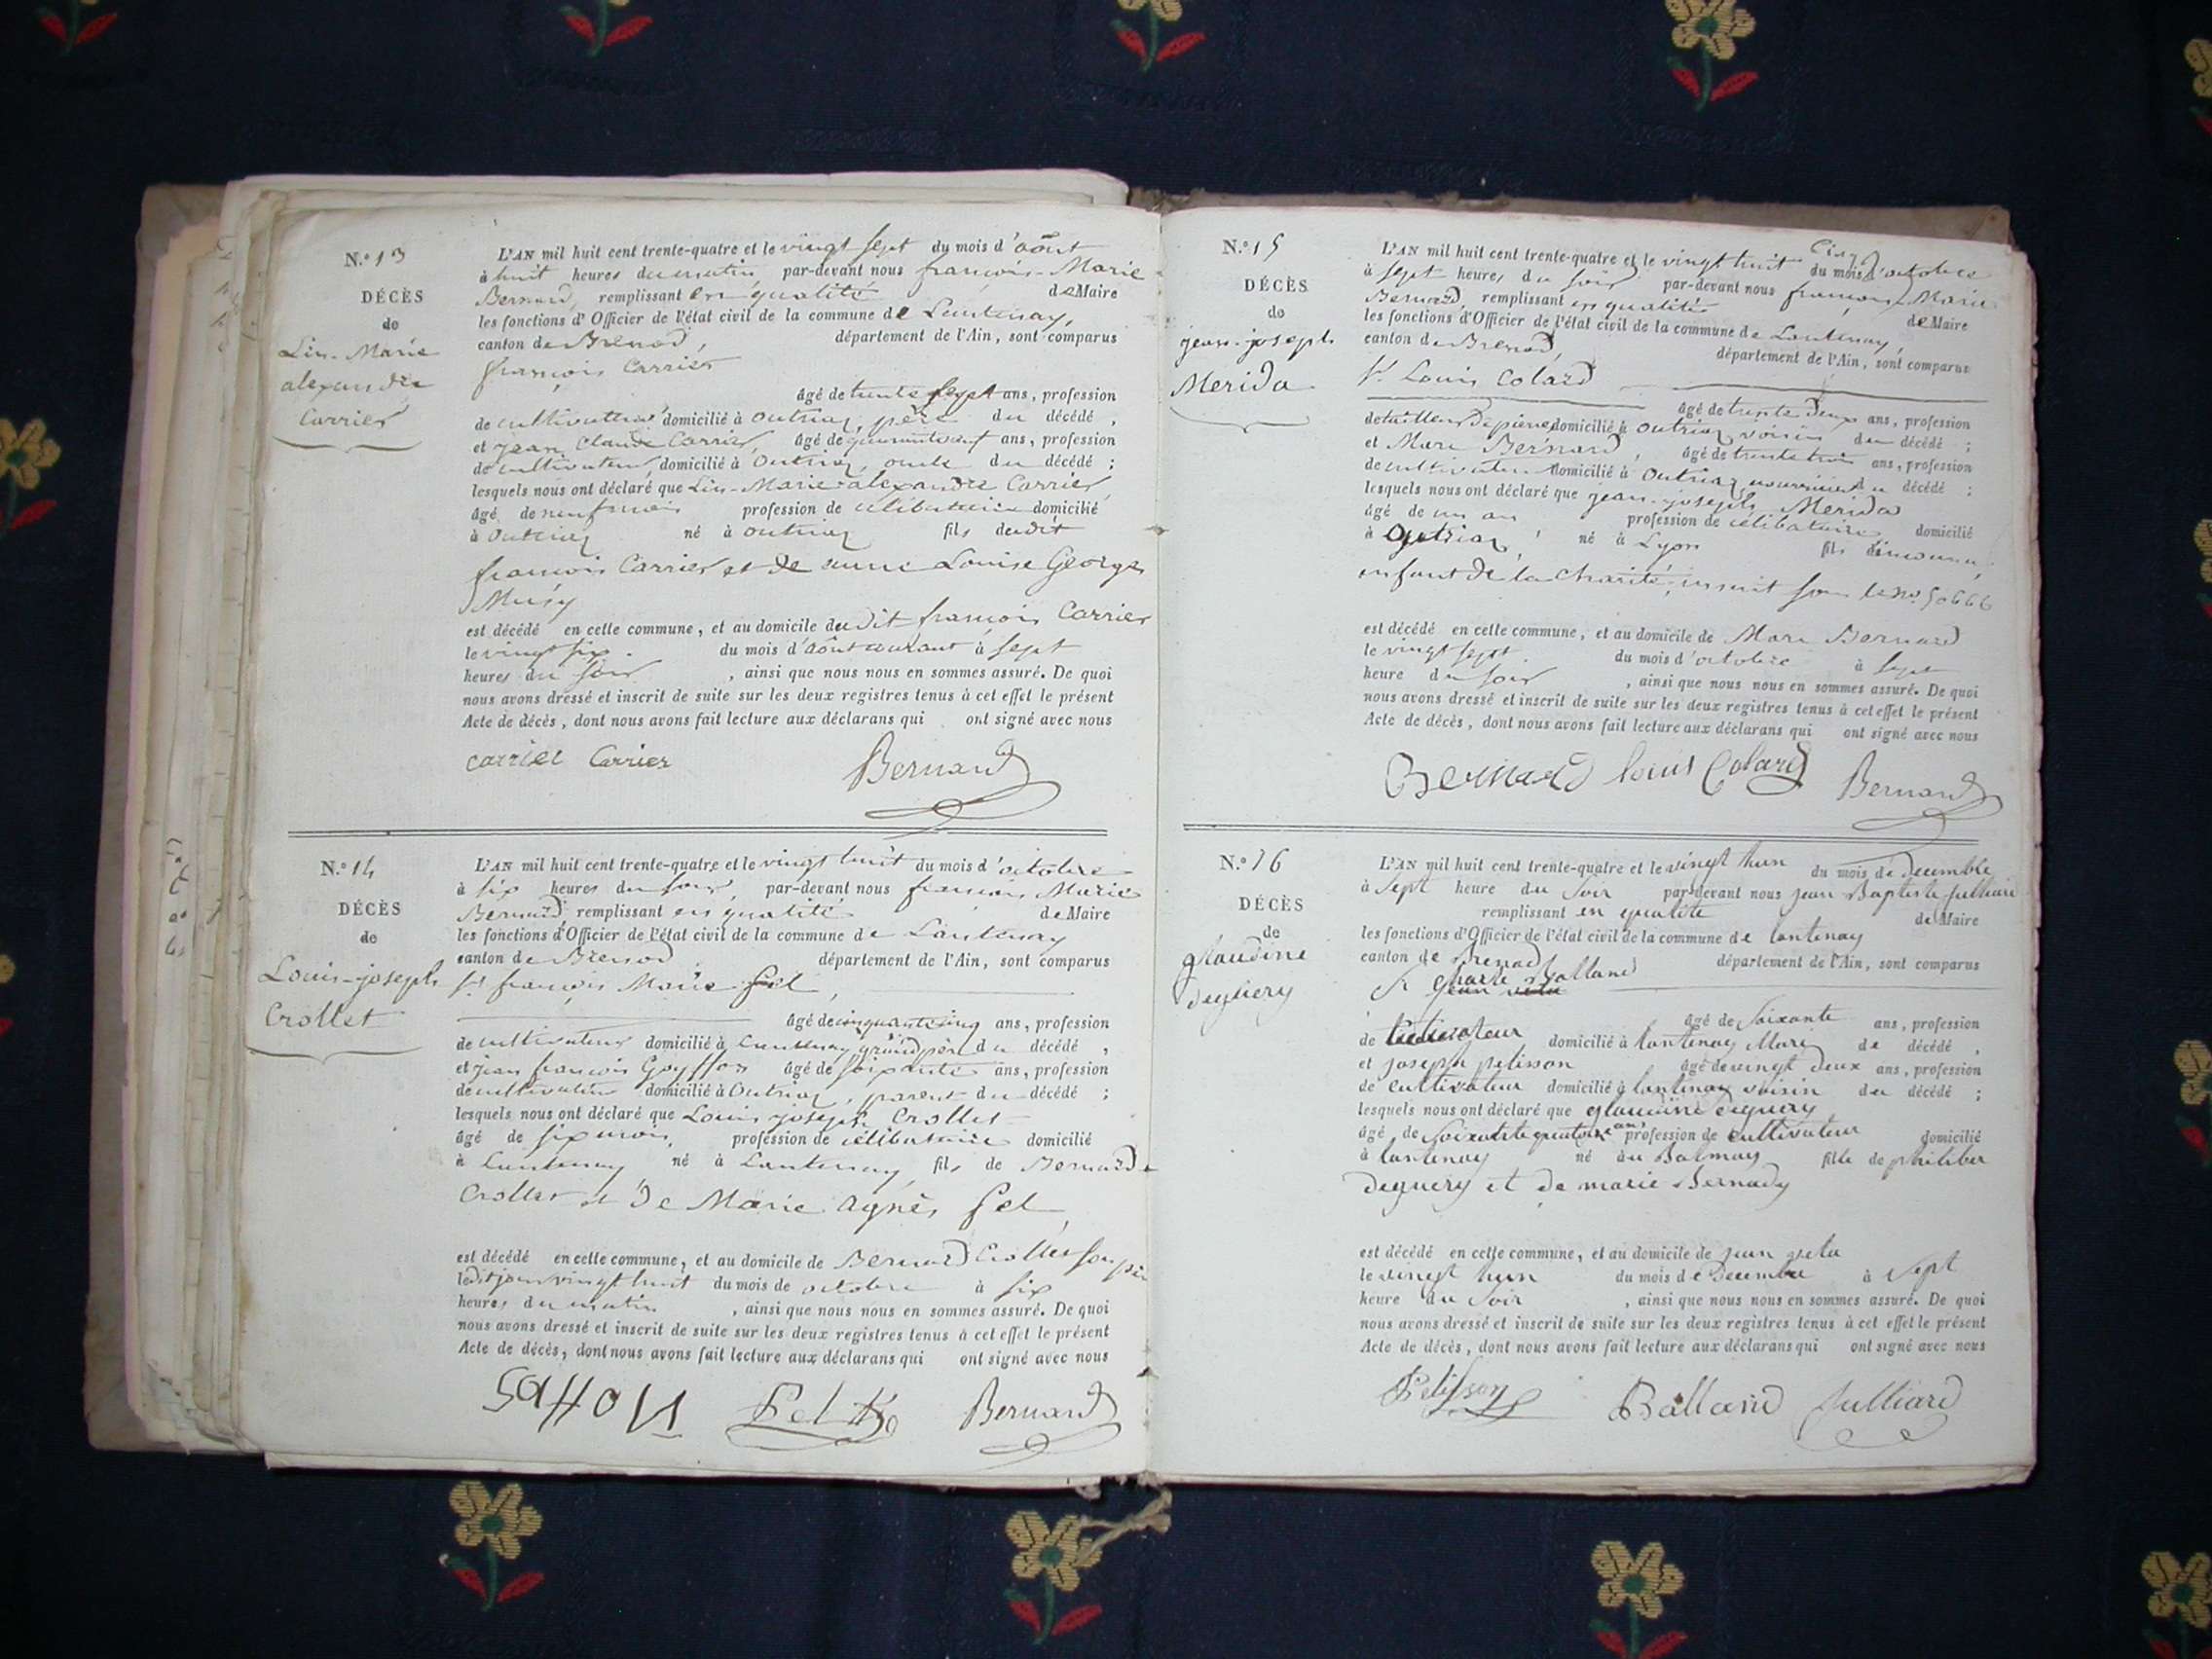 N.º 13
DÉCÈS
de
Lin-Marie
alexandre
Carrier
L'AN mil huit cent trente-quatre et le vingt sept du mois d'août
à huit heures du matin, par-devant nous françois-Marie
Bernard, remplissant en qualité de Maire
les fonctions d'Officier de l'état civil de la commune de Lantenay,
canton de Brenod, département de l'Ain, sont comparus
françois Carrier
âgé de trente sept ans, profession
de cultivateur, domicilié à Outriaz, père du décédé,
et jean Claude Carrier, âgé de ans, profession
de cultivateur, domicilié à Outriaz, oncle du décédé;
lesquels nous ont déclaré que Lin-Marie-alexandre Carrier,
âgé de neuf mois profession de célibataire domicilié
à Outriaz né à outriaz fils dudit
françois Carrier et de anne Louise George
Musy
est décédé en cette commune, et au domicile dudit françois Carrier
le vingt six. du mois d'août courant à sept
heures du soir, ainsi que nous nous en sommes assuré. De quoi
nous avons dressé et inscrit de suite sur les deux registres tenus à cet effet le présent
Acte de décès, dont nous avons fait lecture aux déclarans qui ont signé avec nous
carrier Carrier Bernard
N.º 14
DÉCÈS
de
Louis-joseph
Crollet
L'AN mil huit cent trente-quatre et le vingt huit du mois d'octobre
à six heures du soir, par-devant nous françois Marie
Bernard remplissant en qualité de Maire
les fonctions d'Officier de l'état civil de la commune de Lantenay
canton de Brenod, département de l'Ain, sont comparus
Sr. françois Marie Pel,
âgé de cinquante cinq ans, profession
de cultivateur domicilié à Lantenay grand père du décédé,
et jean françois Goyffon âgé de soixante ans, profession
de cultivateur domicilié à Outriaz, parent du décédé;
lesquels nous ont déclaré que Louis joseph Crollet
âgé de six mois, profession de célibataire domicilié
à Lantenay né à Lantenay, fils de Bernard
Crollet et de Marie Agnès Pel,
est décédé en cette commune, et au domicile de Bernard Crollet son père
ledit jour vingt huit du mois de octobre à six
heures du matin, ainsi que nous nous en sommes assuré. De quoi
nous avons dressé et inscrit de suite sur les deux registres tenus à cet effet le présent
Acte de décès, dont nous avons fait lecture aux déclarans qui ont signé avec nous
Pel Bernard
N.º 15
DÉCÈS
de
jean-joseph
Merida
L'AN mil huit cent trente-quatre et le vingt huit du mois d'octobre
à sept heures du soir par-devant nous françois Marie
Bernard, remplissant en qualité de Maire
les fonctions d'Officier de l'état civil de la commune de Lantenay,
canton de Brenod, département de l'Ain, sont comparus
Sr. Louis Colard
âgé de trente deux ans, profession
de tailleur de pierre, domicilié à Outriaz voisin du décédé;
et Marc Bernard, âgé de trente trois ans, profession
de cultivateur domicilié à Outriaz nourricier du décédé;
lesquels nous ont déclaré que jean-joseph Merida
âgé de un an profession de célibataire domicilié
à Outriaz, né à Lyon fils d'inconnu,
enfant de la charité, inscrit sous le no. 50666
est décédé en cette commune, et au domicile de Marc Bernard
le vingt sept. du mois d'octobre à sept
heure du soir, ainsi que nous nous en sommes assuré. De quoi
nous avons dressé et inscrit de suite sur les deux registres tenus à cet effet le présent
Acte de décès, dont nous avons fait lecture aux déclarans qui ont signé avec nous
Bernard louis Colard Bernard
N.º 16
DÉCÈS
de
glaudine
deguery
L'AN mil huit cent trente-quatre et le vingt hun du mois de decembre
à sept heure du soir par-devant nous jean Baptiste julliard
remplissant en qualité de Maire
les fonctions d'Officier de l'état civil de la commune de lantenay
canton de Brenod département de l'Ain, sont comparus
Sr Charle Balland
âgé de soixante ans, profession
de cultivateur domicilié à lantenay Mari de décédé,
et joseph pelisson âgé de vingt deux ans, profession
de cultivateur domicilié à lantenay voisin du décédé;
lesquels nous ont déclaré que glaudine deguery
âgé de soixante quatorze ans profession de cultivateur domicilié
à lantenay né au Balmay fille de philiber
deguery et de marie Bernady
est décédé en cette commune, et au domicile de jean vela
le vingt hun du mois de decembre à sept
heure du soir, ainsi que nous nous en sommes assuré. De quoi
nous avons dressé et inscrit de suite sur les deux registres tenus à cet effet le présent
Acte de décès, dont nous avons fait lecture aux déclarans qui ont signé avec nous
Pelisson Balland Julliard